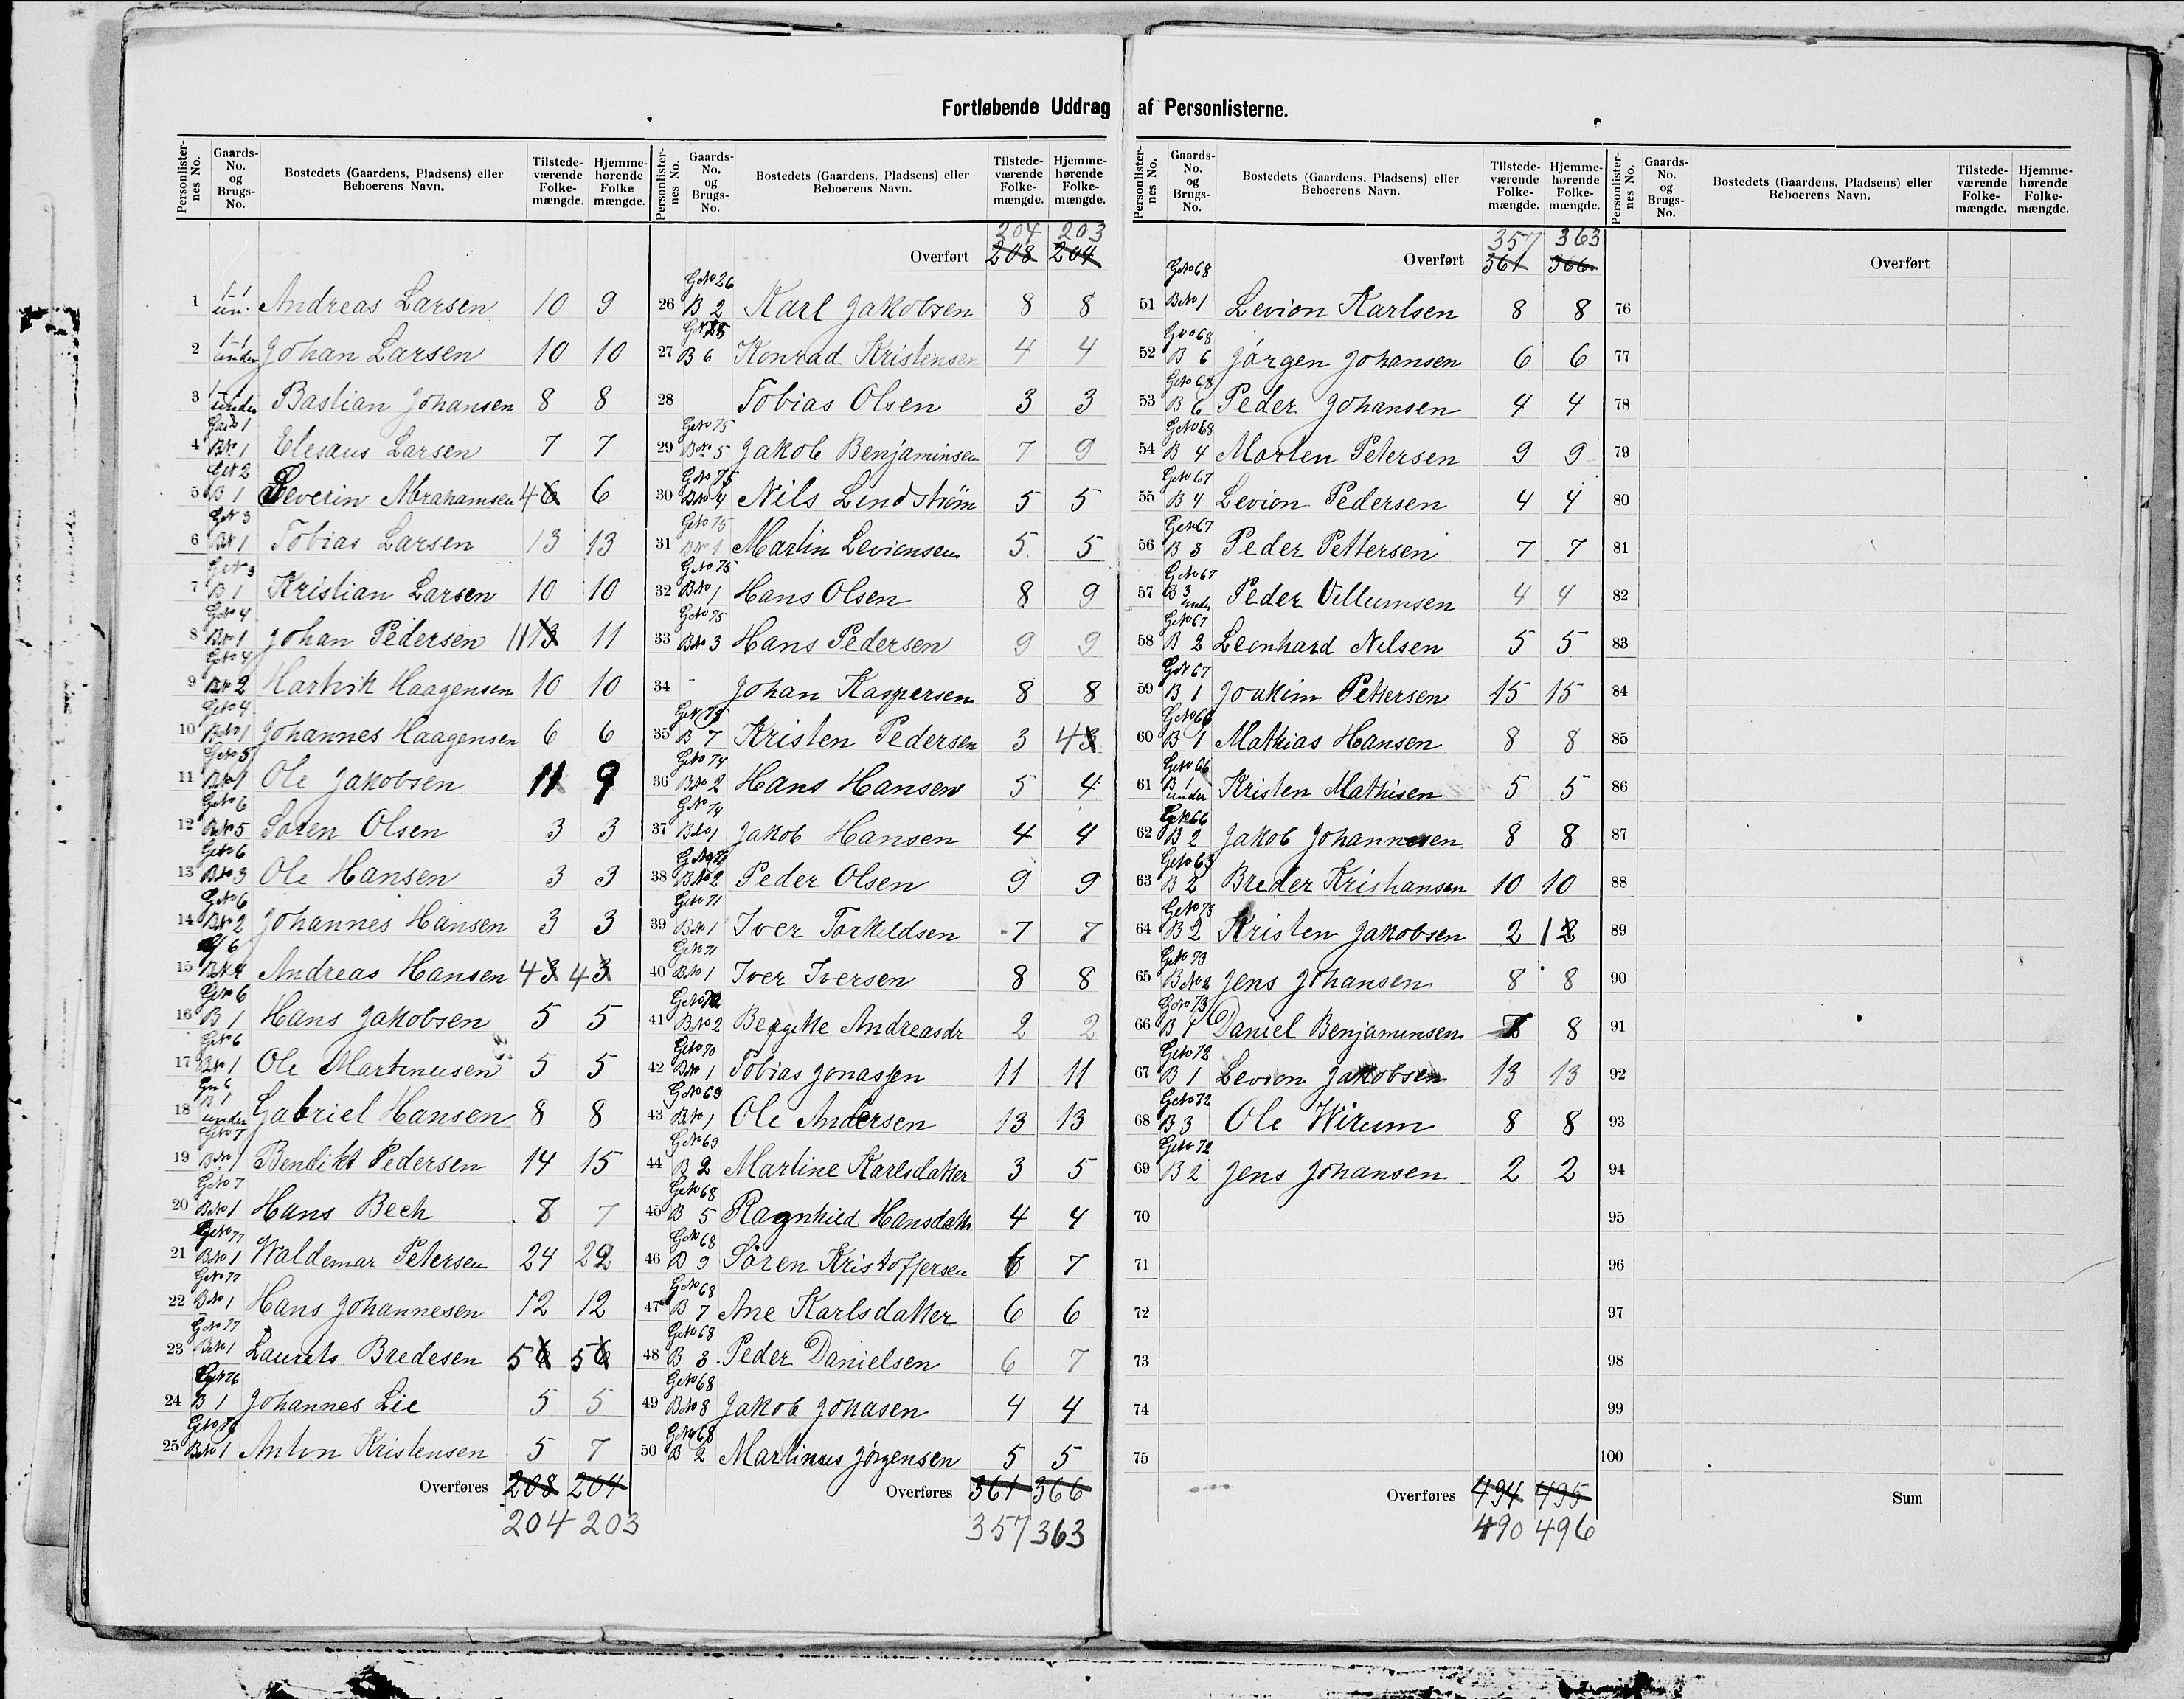 Fortløbende Uddrag af Personlisterne.
Personlisternes No. Gaards-No. og Brugs-No. Bostedets (Gaardens, Pladsens) eller Beboerens Navn. Tilstedeværende Folkemængde. Hjemmehørende Folkemængde.
1 1-1 un. Andreas Larsen 10 9
2 1-1 under Johan Larsen 10 10
3 1-1 under Bastian Johansen 8 8
4 BNo 1 Elesæus Larsen 7 7
5 GNo 2 B 1 Severin Abrahamsen 4 6 6
6 GNo 3 BNo 1 Tobias Larsen 13 13
7 GNo 3 B 1 Kristian Larsen 10 10
8 GNo 4 BNo 1 Johan Pedersen 11 13 11
9 GNo 4 BNo 2 Hartvik Haagensen 10 10
10 GNo 4 BNo 1 Johannes Haagensen 6 6
11 GNo 5 BNo 1 Ole Jakobsen 11 9
12 GNo 6 BNo 5 Søren Olsen 3 3
13 GNo 6 BNo 3 Ole Hansen 3 3
14 GNo 6 BNo 2 Johannes Hansen 3 3
15 G 6 BNo 4 Andreas Hansen 4 3 4 3
16 GNo 6 B 1 Hans Jakobsen 5 5
17 GNo 6 BNo 1 Ole Martinusen 5 5
18 GN 6 B 1 under Gabriel Hansen 8 8
19 GNo 7 BNo 1 Bendikt Pedersen 14 15
20 GNo 7 BNo 1 Hans Bech 8 7
21 GNo 77 BNo 1 Waldemar Petersen 24 22
22 GNo 77 BNo 1 Hans Johannesen 12 12
23 GNo 77 BNo 1 Laurits Bredesen 5 6 5 6
24 GNo 76 B 1 Johannes Lie 5 5
25 GNo 76 BNo 1 Anton Kristensen 5 7
Overføres 208 204
204 203
Personlisternes No. Gaards-No. og Brugs-No. Bostedets (Gaardens, Pladsens) eller Beboerens Navn. Tilstedeværende Folkemængde. Hjemmehørende Folkemængde.
204 203
Overført 208 204
26 GNo 26 B 2 Karl Jakobsen 8 8
27 B 6 Konrad Kristensen 4 4
28 Tobias Olsen 3 3
29 GNo 75 BNo 5 Jakob Benjaminsen 7 9
30 GNo 75 BNo 4 Nils Lindstrøm 5 5
31 GNo 75 BNo 1 Martin Levionsen 5 5
32 GNo 75 BNo 1 Hans Olsen 8 9
33 GNo 75 BNo 3 Hans Pedersen 9 9
34 Johan Kaspersen 8 8
35 GNo 75 B 7 Kristen Pedersen 3 4 3
36 GNo 74 BNo 2 Hans Hansen 5 4
37 GNo 74 BNo 1 Jakob Hansen 4 4
38 BNo 2 Peder Olsen 9 9
39 GNo 71 BNo 1 Iver Torkildsen 7 7
40 GNo 71 BNo 1 Iver Iversen 8 8
41 BNo 2 Bergitte Andreasdr 2 2
42 GNo 70 BNo 1 Tobias Jonassen 11 11
43 GNo 69 BNo 1 Ole Andersen 13 13
44 GNo 69 B 2 Martine Karlsdatter 3 5
45 GNo 68 B 5 Ragnhild Hansdatter 4 4
46 GNo 68 B 9 Søren Kristoffersen 6 7
47 GNo 68 B 7 Ane Karlsdatter 6 6
48 GNo 68 B 3 Peder Danielsen 6 7
49 GNo 68 BNo 8 Jakob Jonasen 4 4
50 GNo 68 B 2 Martinus Jørgensen 5 5
Overføres 361 366
357 363
Personlisternes No. Gaards-No. og Brugs-No. Bostedets (Gaardens, Pladsens) eller Beboerens Navn. Tilstedeværende Folkemængde. Hjemmehørende Folkemængde.
357 363
Overført 361 366
51 GNo 68 BNo 1 Levion Karlsen 8 8
52 GNo 68 B 6 Jørgen Johansen 6 6
53 GNo 68 B 6 Peder Johansen 4 4
54 GNo 68 B 4 Morten Petersen 9 9
55 GNo 67 B 4 Levion Pedersen 4 4
56 GNo 67 B 3 Peder Pettersen 7 7
57 GNo 67 B 3 under Peder Villumsen 4 4
58 GNo 67 B 2 Leonhard Nilsen 5 5
59 GNo 67 B 1 Joakim Pettersen 15 15
60 GNo 66 B 1 Mathias Hansen 8 8
61 GNo 66 B 1 under Kristen Mathisen 5 5
62 GNo 66 B 2 Jakob Johannesen 8 8
63 GNo 63 B 2 Breder Kristiansen 10 10
64 GNo 73 B 2 Kristen Jakobsen 2 1 2
65 GNo 73 BNo 2 Jens Johansen 8 8
66 GNo 73 B 1 Daniel Benjaminsen 8 8
67 GNo 72 B 1 Levion Jakobsen 13 13
68 GNo 72 B 3 Ole Wirum 8 8
69 GNo 72 B 2 Jens Johansen 2 2
70
71
72
73
74
75
Overføres 494 495
490 496
Personlisternes No. Gaards-No. og Brugs-No. Bostedets (Gaardens, Pladsens) eller Beboerens Navn. Tilstedeværende Folkemængde. Hjemmehørende Folkemængde.
Overført
76
77
78
79
80
81
82
83
84
85
86
87
88
89
90
91
92
93
94
95
96
97
98
99
100
Sum